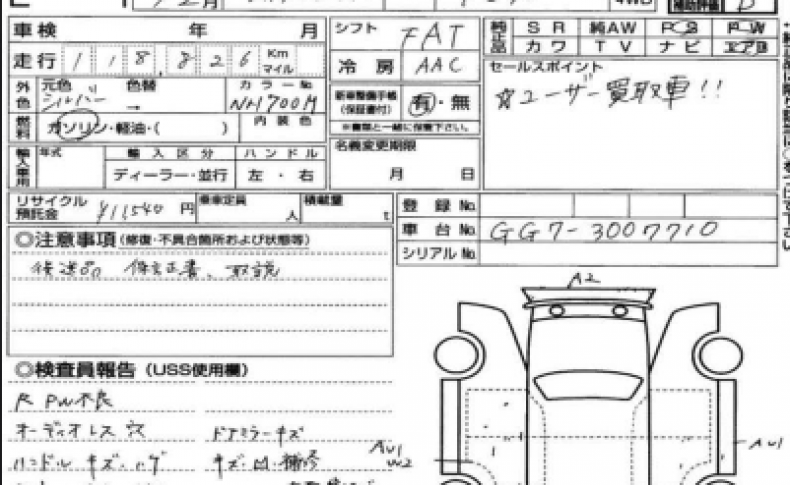 12月
4WD
補助評価 D
車検 年 月
シフト FAT
純正品 SR 純AW PS PW
カワ TV ナビ エアB
走行 118,826 Km マイル
冷房 AAC
セールスポイント
☆ユーザー買取車!!
外色 元色 シルバー 色替 → カラーNo NH700M
新車整備手帳(保証書付) 有・無
※書類と一緒に保管下さい。
燃料 ガソリン・軽油・( ) 内装色
名義変更期限
月 日
輸入車用 年式 輸入区分 ハンドル
ディーラー・並行 左・右
リサイクル預託金 ¥11,540 円 乗車定員 人 積載量 t
登録No.
車台No. GG7-3007710
シリアルNo.
◎注意事項(修復・不具合箇所および状態等)
後送品 保証書、取説
A2
◎検査員報告(USS使用欄)
R PW不良
オーディオレス穴 ドアミラーキズ
ハンドルキズ・ハゲ キズ・凹・補修
AU1
W2
AU1